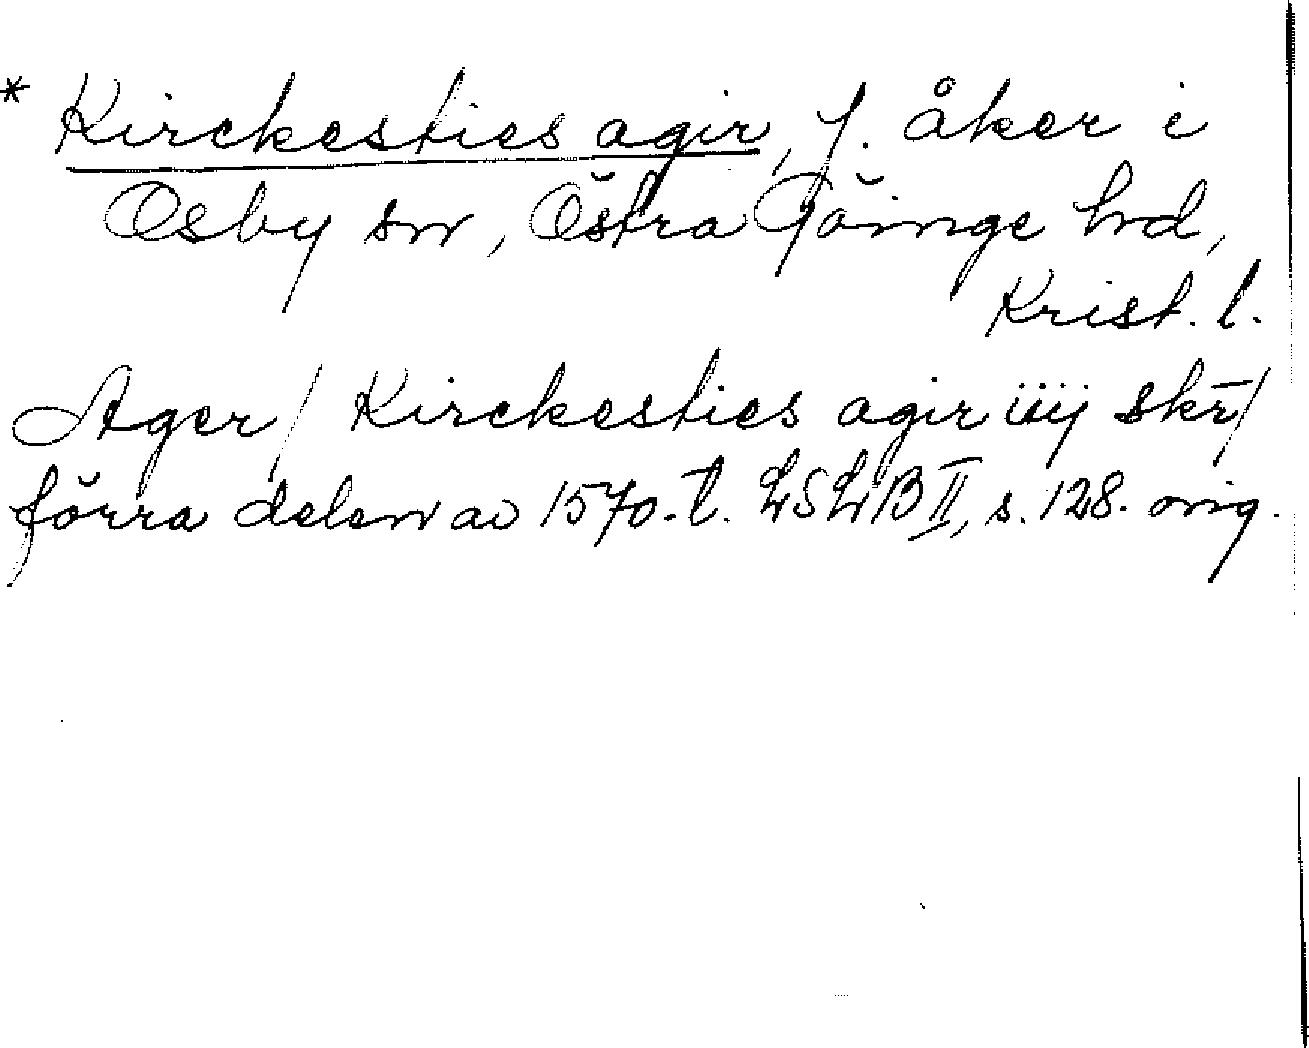 * Kirckesties agir, f. åker i
Osby sn, Östra Göinge hd,
Krist. l.
Ager / Kirckesties agir iiij skr̄ /
förra delen av 1570-t. LSLB II, s. 128. orig.